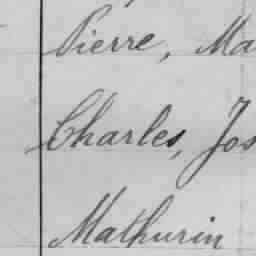 Pierre, Ma
Charles, Jos
Mathurin